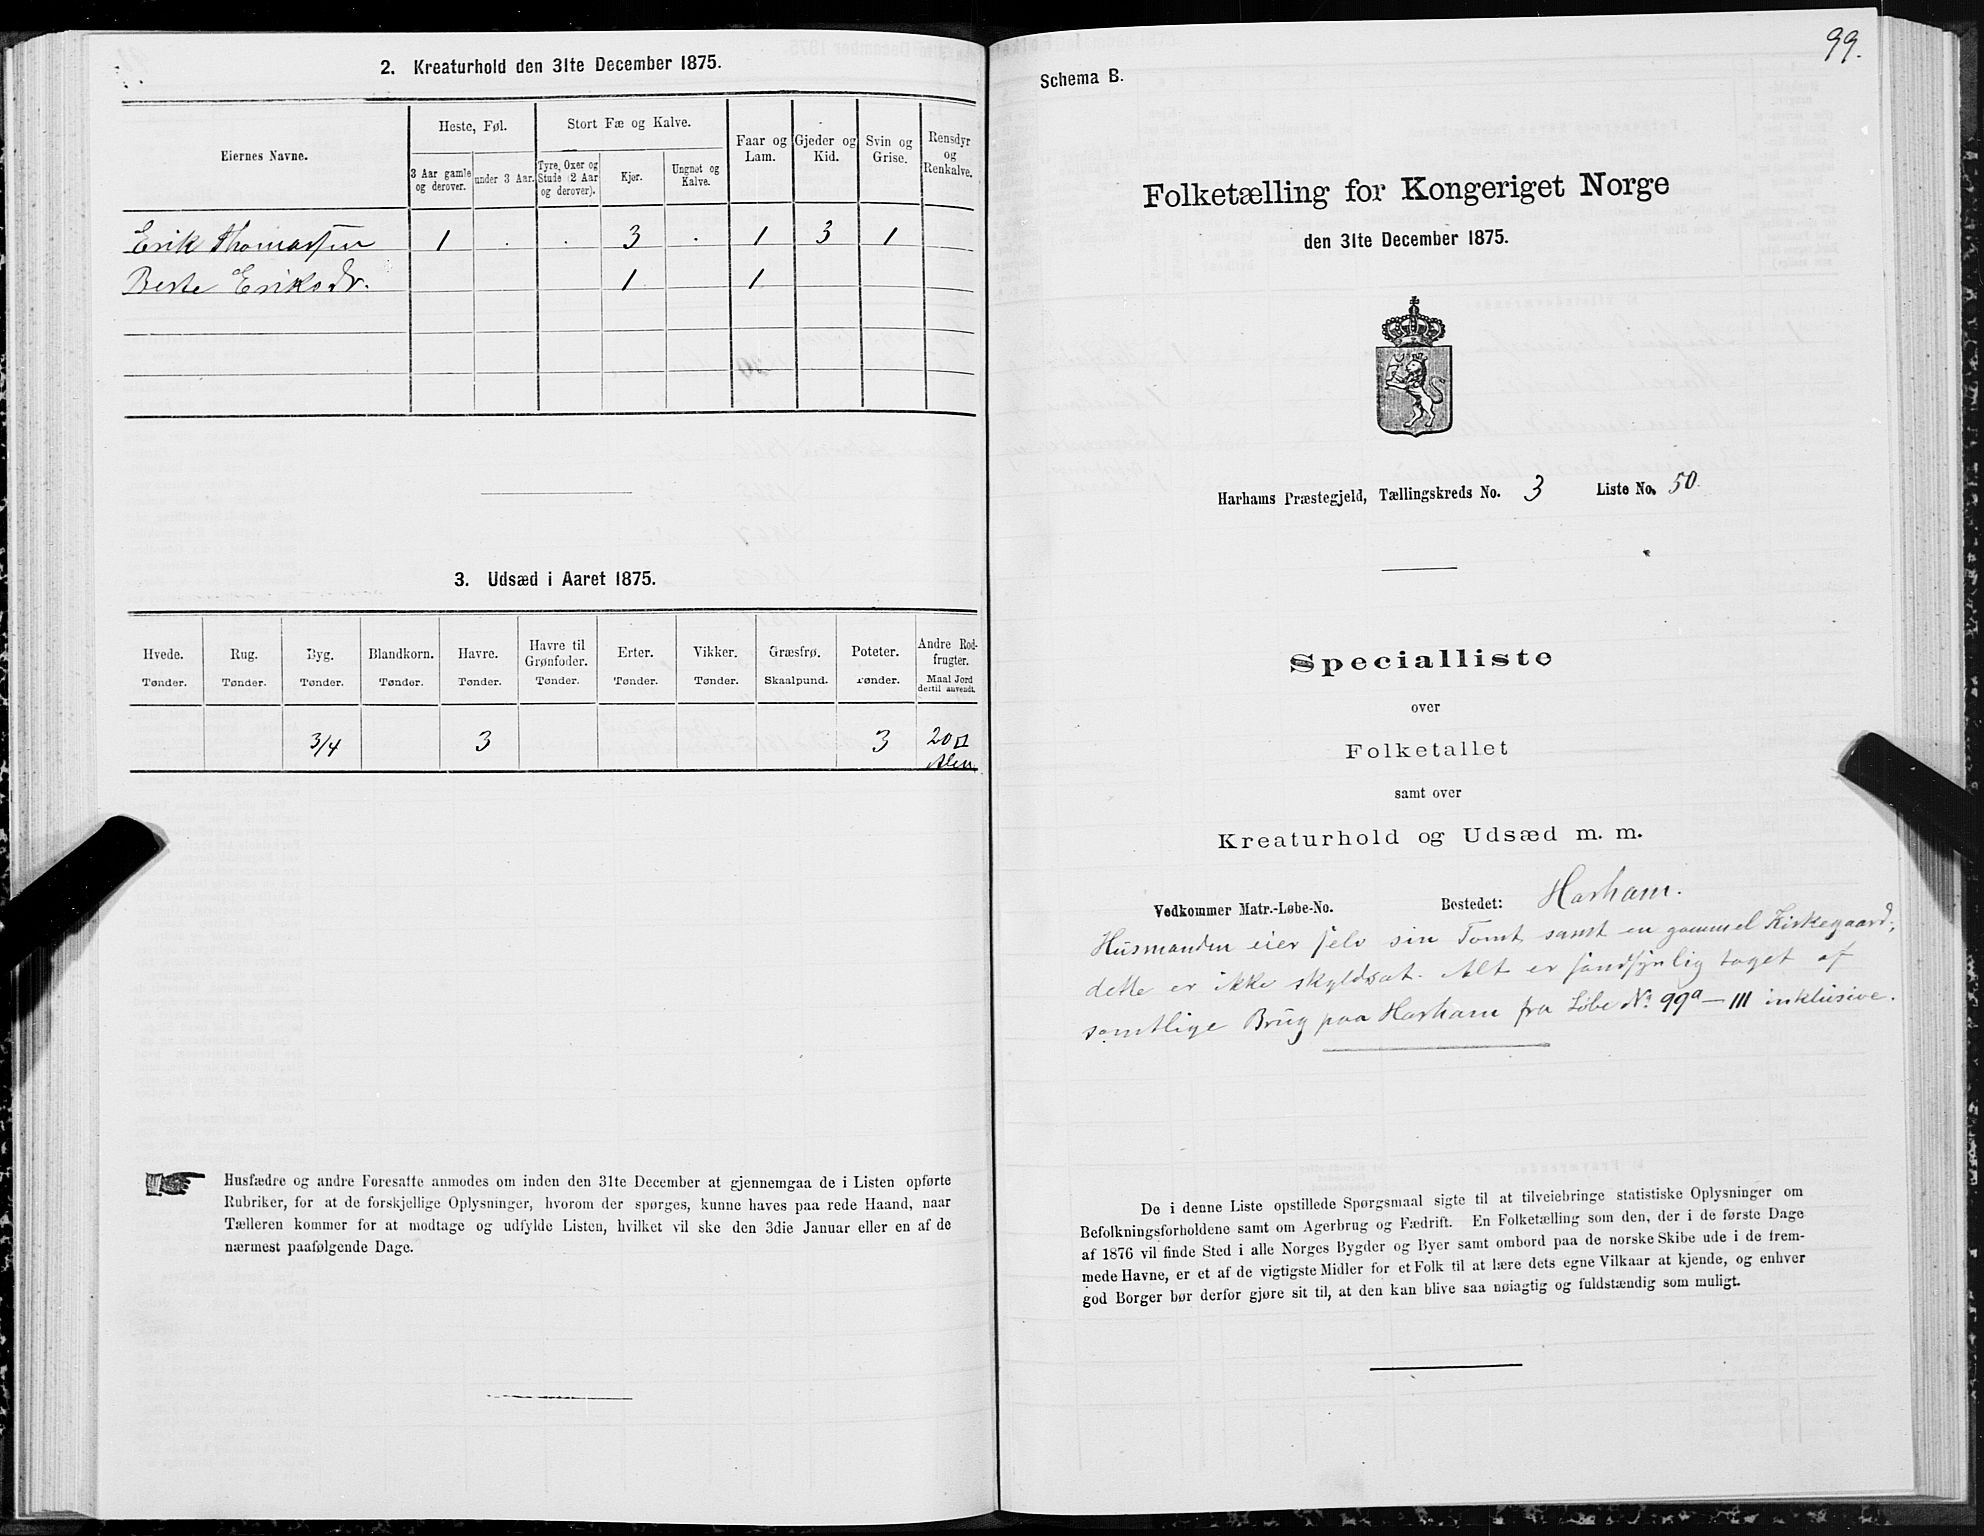 2. Kreaturhold den 31te December 1875.
Eiernes Navne.
Heste, Føl.
Stort Fæ og Kalve.
Faar og Lam.
Gjeder og Kid.
Svin og Grise.
Rensdyr og Renkalve.
3 Aar gamle og derover.
under 3 Aar.
Tyre, Oxer og Stude (2 Aar og derover).
Kjør.
Ungnøt og Kalve.
Erik Thomassen 1 . . 3 . 1 3 1
Berte Eriksdr. 1 1
3. Udsæd i Aaret 1875.
Hvede. Rug. Byg. Blandkorn. Havre. Havre til Grønfoder. Erter. Vikker. Græsfrø. Poteter. Andre Rodfrugter.
Tønder. Tønder. Tønder. Tønder. Tønder. Tønder. Tønder. Tønder. Skaalpund. Tønder. Maal Jord dertil anvendt.
3/4 3 3 20 □ Alen
Husfædre og andre Foresatte anmodes om inden den 31te December at gjennemgaa de i Listen opførte
Rubriker, for at de forskjellige Oplysninger, hvorom der spørges, kunne haves paa rede Haand, naar
Tælleren kommer for at modtage og udfylde Listen, hvilket vil ske den 3die Januar eller en af de
nærmest paafølgende Dage.
99.
Schema B.
Folketælling for Kongeriget Norge
den 31te December 1875.
Harhams Præstegjeld, Tællingskreds No. 3 Liste No. 50.
Specialliste
over
Folketallet
samt over
Kreaturhold og Udsæd m. m.
Vedkommer Matr.-Løbe-No. Bostedet: Harham.
Husmanden eier selv sin Tomt samt en gammel Kirkegaard;
dette er ikke skyldsat. Alt er sandsynlig taget af
samtlige Brug paa Harham fra Løbe No. 99a — 111 inklusive.
De i denne Liste opstillede Spørgsmaal sigte til at tilveiebringe statistiske Oplysninger om
Befolkningsforholdene samt om Agerbrug og Fædrift. En Folketælling som den, der i de første Dage
af 1876 vil finde Sted i alle Norges Bygder og Byer samt ombord paa de norske Skibe ude i de frem-
mede Havne, er et af de vigtigste Midler for et Folk til at lære dets egne Vilkaar at kjende, og enhver
god Borger bør derfor gjøre sit til, at den kan blive saa nøiagtig og fuldstændig som muligt.